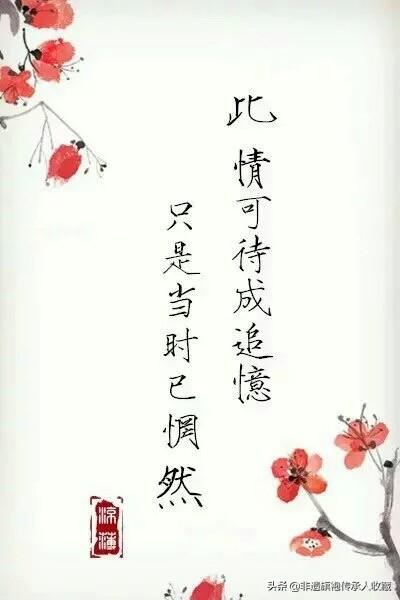 此情可待成追憶
只是当时已惘然
头条 @非遗旗袍传承人收藏